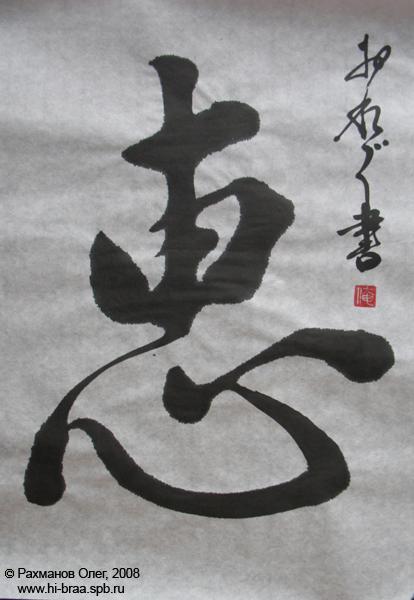 恵
おれぐ書
© Рахманов Олег, 2008
www.hi-braa.spb.ru